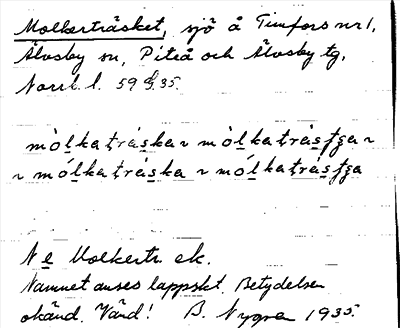 Molkerträsket, sjö å Timfors nr 1,
Älvsby sn, Piteå och Älvsby tg,
Norrb. l. 59 35.
mòlkatrạ́ska ~ mòlkatrạ́sʃga ~
~ mólkatrạ́ska ~ mólkatrạ́sʃga
N e Molkertr. ek.
Namnet anses lappskt. Betydelsen
okänd. Vänd! B. Nygren 1935.